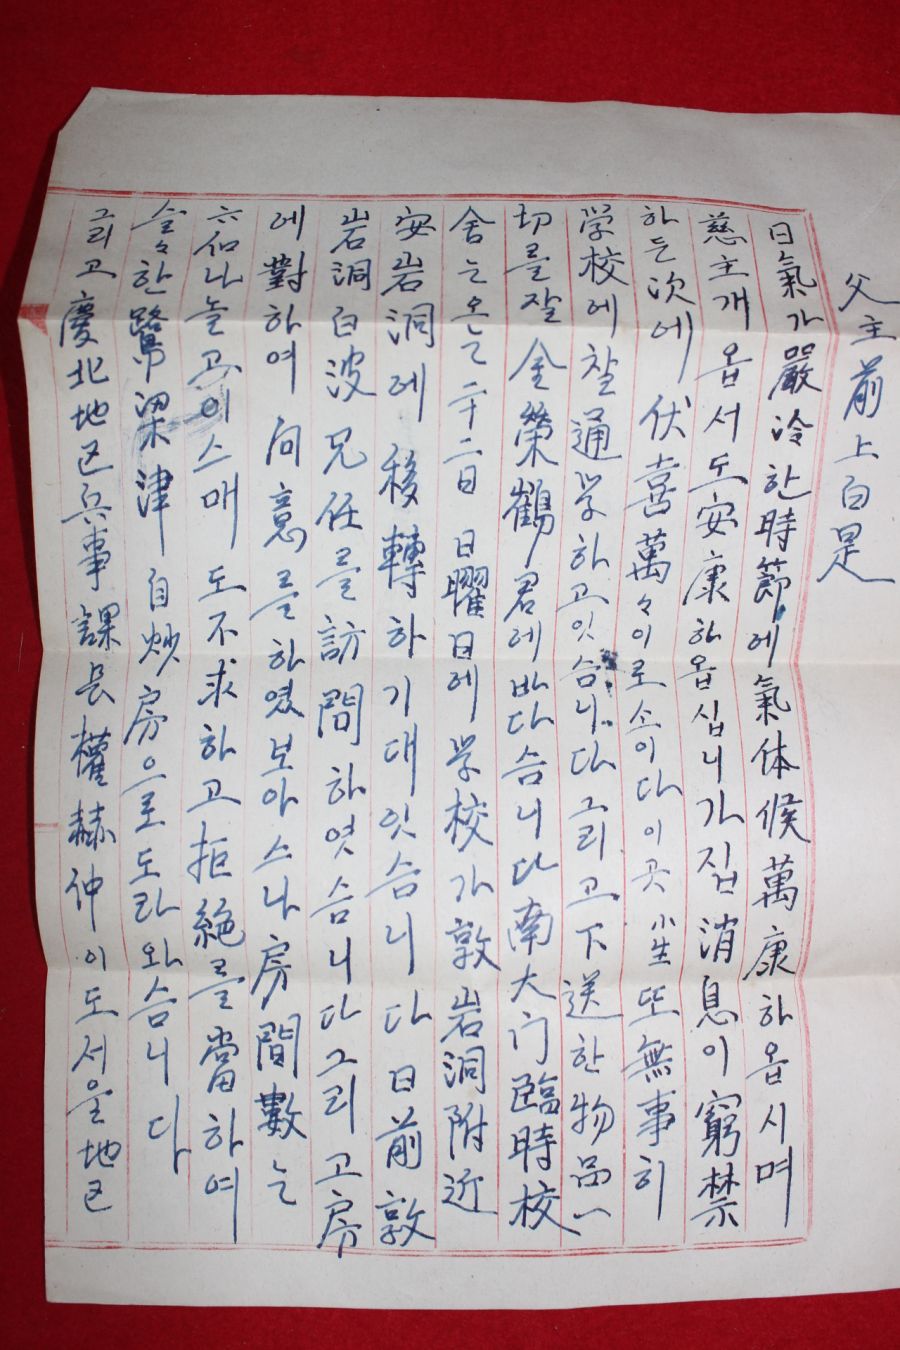 父主前上白是
日氣가嚴冷한時節에氣体候萬康하옵시며
慈主개옵서도安康하옵십니가집消息이窮禁
하든次에伏喜萬々이로소이다이곳小生또無事히
学校에잘通学하고잇슴니다그리고下送한物品一
切를잘金榮鶴君에바다슴니다南大门臨時校
舍는오는二十二日日曜日에学校가敦岩洞附近
安岩洞에移轉하기대잇슴니다日前敦
岩洞白波兄任를訪問하엿슴니다그리고房
에對하여問意를하였보아스나房間數는
六仙나놀고이스매도不求하고拒絶를當하여
슬々한鷺梁津自炒房으로도라와슴니다
그리고慶北地区兵事課長權赫仲이도서울地区